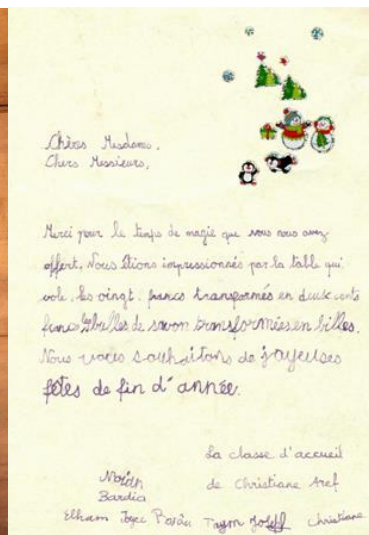 Chères Mesdames,
Chers Messieurs,
Merci pour le temps de magie que vous nous avez
offert. Nous étions impressionnés par la table qui
vole, les vingt francs transformés en deux cents
francs, bulles de savon transformées en billes.
Nous vous souhaitons de joyeuses
fêtes de fin d'année.
La classe d'accueil
de Christiane Aref
Bardia
Elham Joyce Christiane